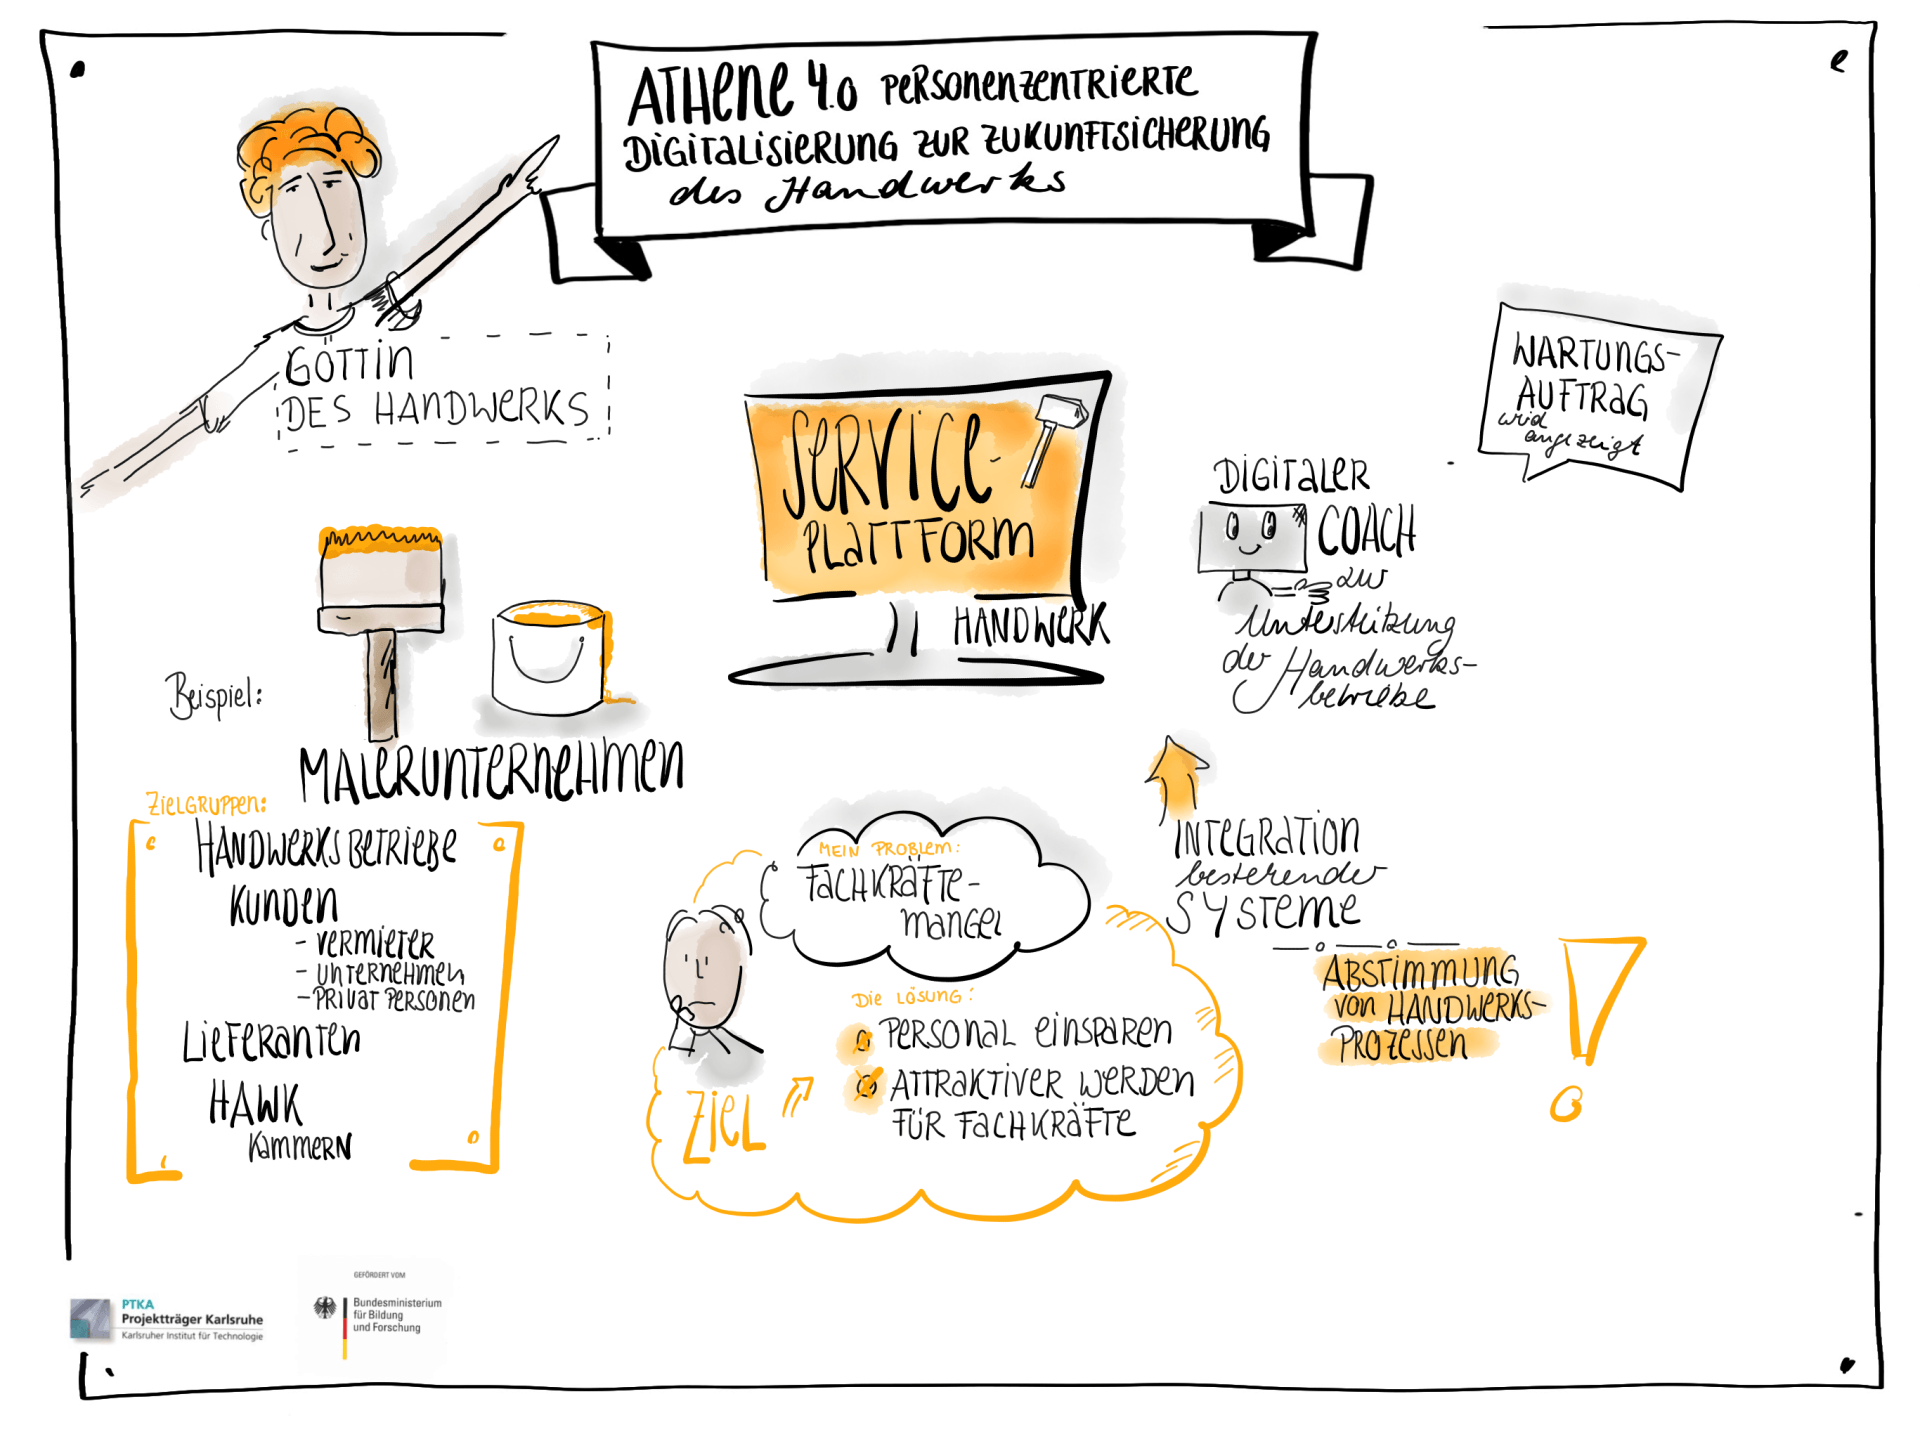 ATHENE 4.0 PERSONENZENTRIERTE
DIGITALISIERUNG ZUR ZUKUNFTSICHERUNG
des Handwerks
GÖTTIN
DES HANDWERKS
SERVICE-
PLATTFORM
HANDWERK
WARTUNGS-
AUFTRAG
wird
angezeigt
DIGITALER
COACH
zur
Unterstützung
der Handwerks-
betriebe
Beispiel:
MALERUNTERNEHMEN
ZIELGRUPPEN:
HANDWERKSBETRIEBE
KUNDEN
- VERMIETER
- UNTERNEHMEN
- PRIVAT PERSONEN
LIEFERANTEN
HAWK
KAMMERN
MEIN PROBLEM:
FACHKRÄFTE-
MANGEL
DIE LÖSUNG:
PERSONAL EINSPAREN
ATTRAKTIVER WERDEN
FÜR FACHKRÄFTE
ZIEL
INTEGRATION
bestehender
SYSTEME
ABSTIMMUNG
VON HANDWERKS-
PROZESSEN
PTKA
Projektträger Karlsruhe
Karlsruher Institut für Technologie
GEFÖRDERT VOM
Bundesministerium
für Bildung
und Forschung